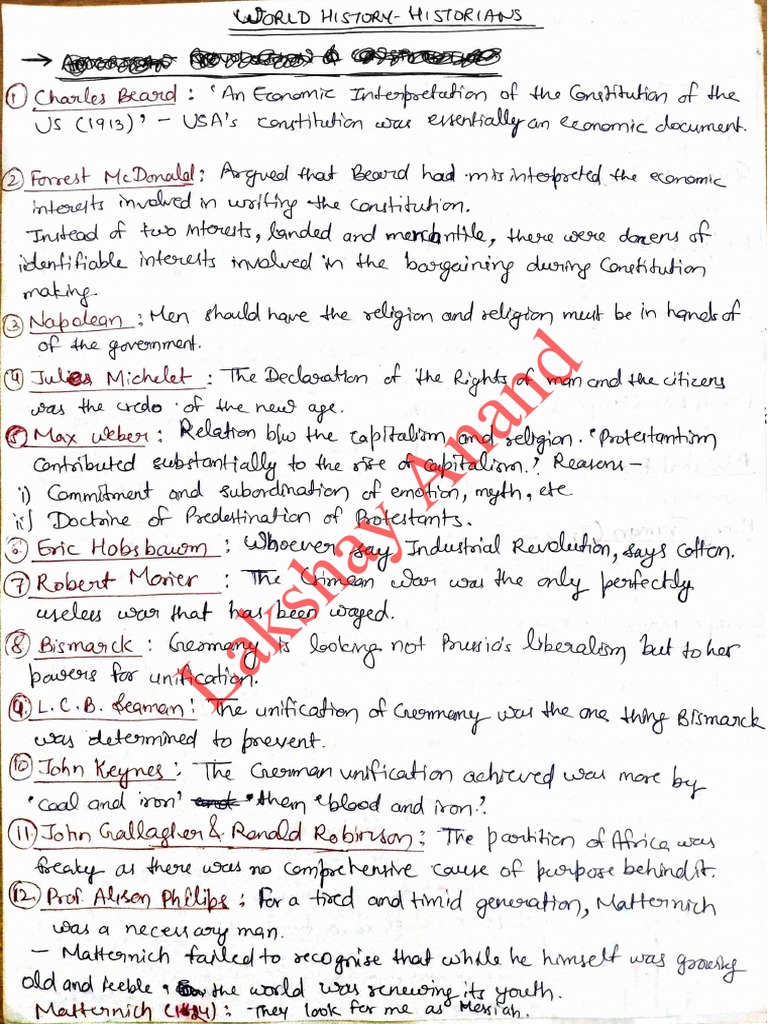 WORLD HISTORY-HISTORIANS
→
① Charles Beard : 'An Economic Interpretation of the Constitution of the
US (1913)' - USA's constitution was essentially an economic document.
② Forrest McDonald : Argued that Beard had misinterpreted the economic
interests involved in writing the constitution.
Instead of two interests, landed and mercantile, there were dozens of
identifiable interests involved in the bargaining during Constitution
making.
③ Napolean : Men should have the religion and religion must be in hands of
of the government.
④ Jules Michelet : The Declaration of the Rights of man and the citizens
was the credo of the new age.
⑤ Max Weber : Relation b/w the capitalism and religion. 'Protestantism
contributed substantially to the rise of capitalism.' Reasons -
i) Commitment and subordination of emotion, myth, etc
ii) Doctrine of Predestination of Protestants.
⑥ Eric Hobsbawm : Whoever say Industrial Revolution, says cotton.
⑦ Robert Morier : The Crimean war was the only perfectly
useless war that has been waged.
⑧ Bismarck : Germany is looking not Prussia's liberalism but to her
powers for unification.
⑨ L.C.B. Seaman : The unification of Germany was the one thing Bismarck
was determined to prevent.
⑩ John Keynes : The German unification achieved was more by
'coal and iron' them 'blood and iron'.
⑪ John Gallagher & Ronald Robinson : The partition of Africa was
freaky as there was no comprehensive cause of purpose behind it.
⑫ Prof. Alison Philips : For a tired and timid generation, Matternich
was a necessary man.
- Matternich failed to recognise that while he himself was growing
old and feeble, the world was renewing its youth.
Matternich : They look for me as Messiah.
Lakshay Anand